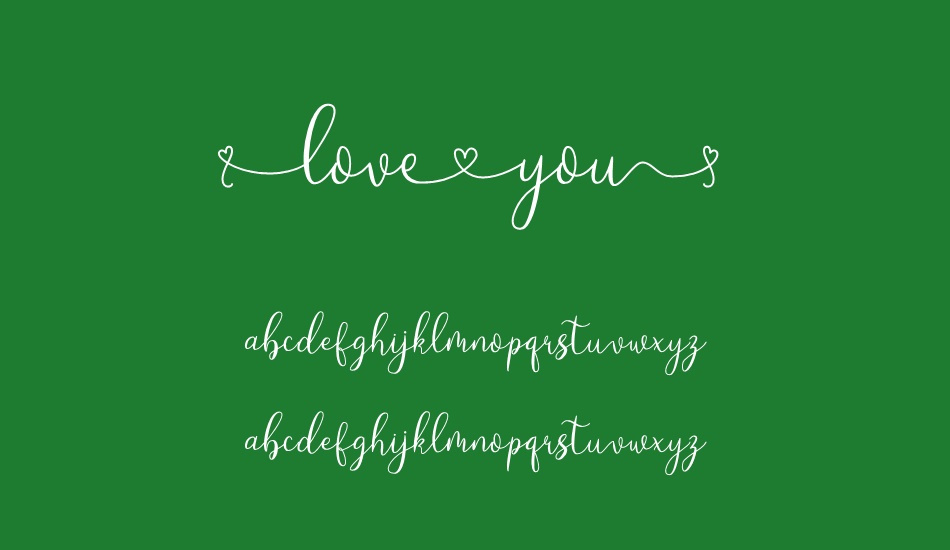 love you
abcdefghijklmnopqrstuvwxyz
abcdefghijklmnopqrstuvwxyz